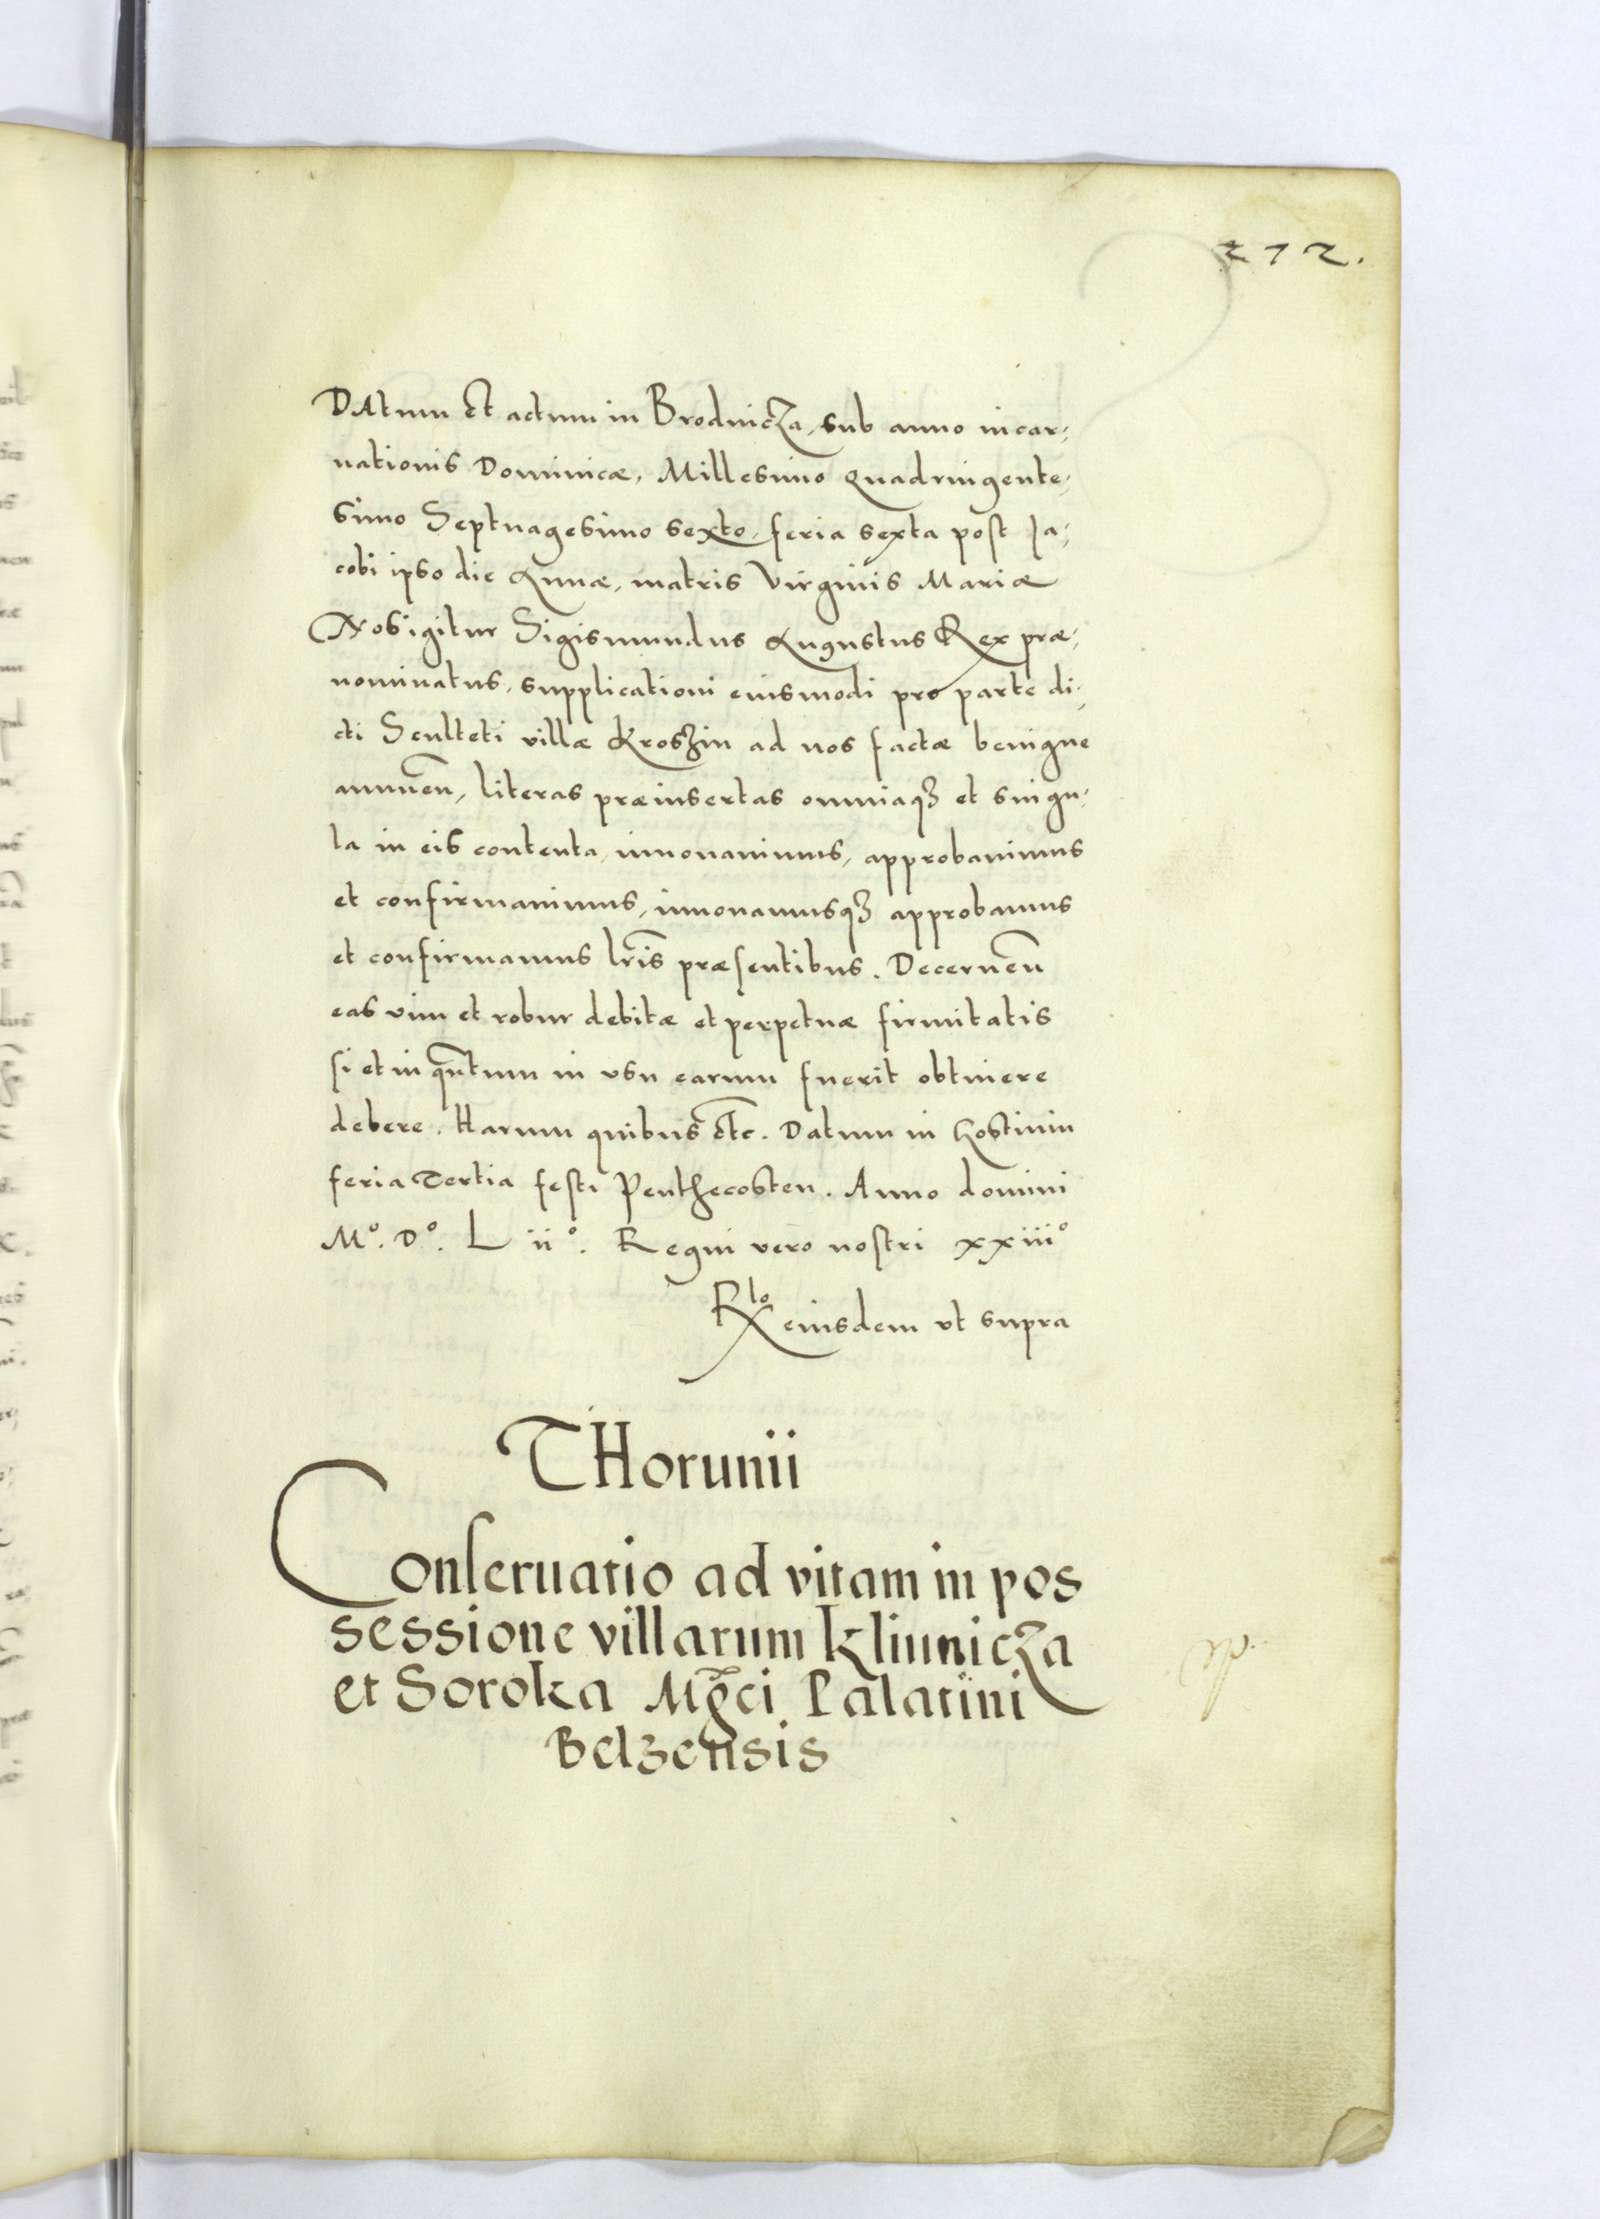 212.
DAtum et actum in Brodnicza, sub anno incar,
nationis Dominicæ, Millesimo Quadringente,
simo Septuagesimo sexto, feria sexta post Ja,
cobi ipso die Annæ, matris Virginis Mariæ
Nos igitur Sigismundus Augustus Rex præ,
nominatus, supplicationi eiusmodi pro parte di,
cti Sculteti villæ Kroszin ad nos factæ benigne
annuen̄, literas præinsertas omniaqꝫ et singu,
la in eis contenta, innouauimus, approbauimus
et confirmauimus, innouamusqꝫ approbamus
et confirmamus lr̄is præsentibus. Decernen̄
eas vim et robur debitæ et perpetuæ firmitatis
si et in qn̄tum in vsu earum fuerit obtinere
debere. Harum quibus etc. Datum in Gostinin
feria Tertia festi Penthecosten. Anno domini
Mº. Dº. L iiº. Regni vero nostri xxiiiº
Rlo eiusdem vt supra
THorunii
Conseruatio ad vitam in pos
sessione villarum Kliunicza
et Soroka Mg̃ci Palatini
Belzensis